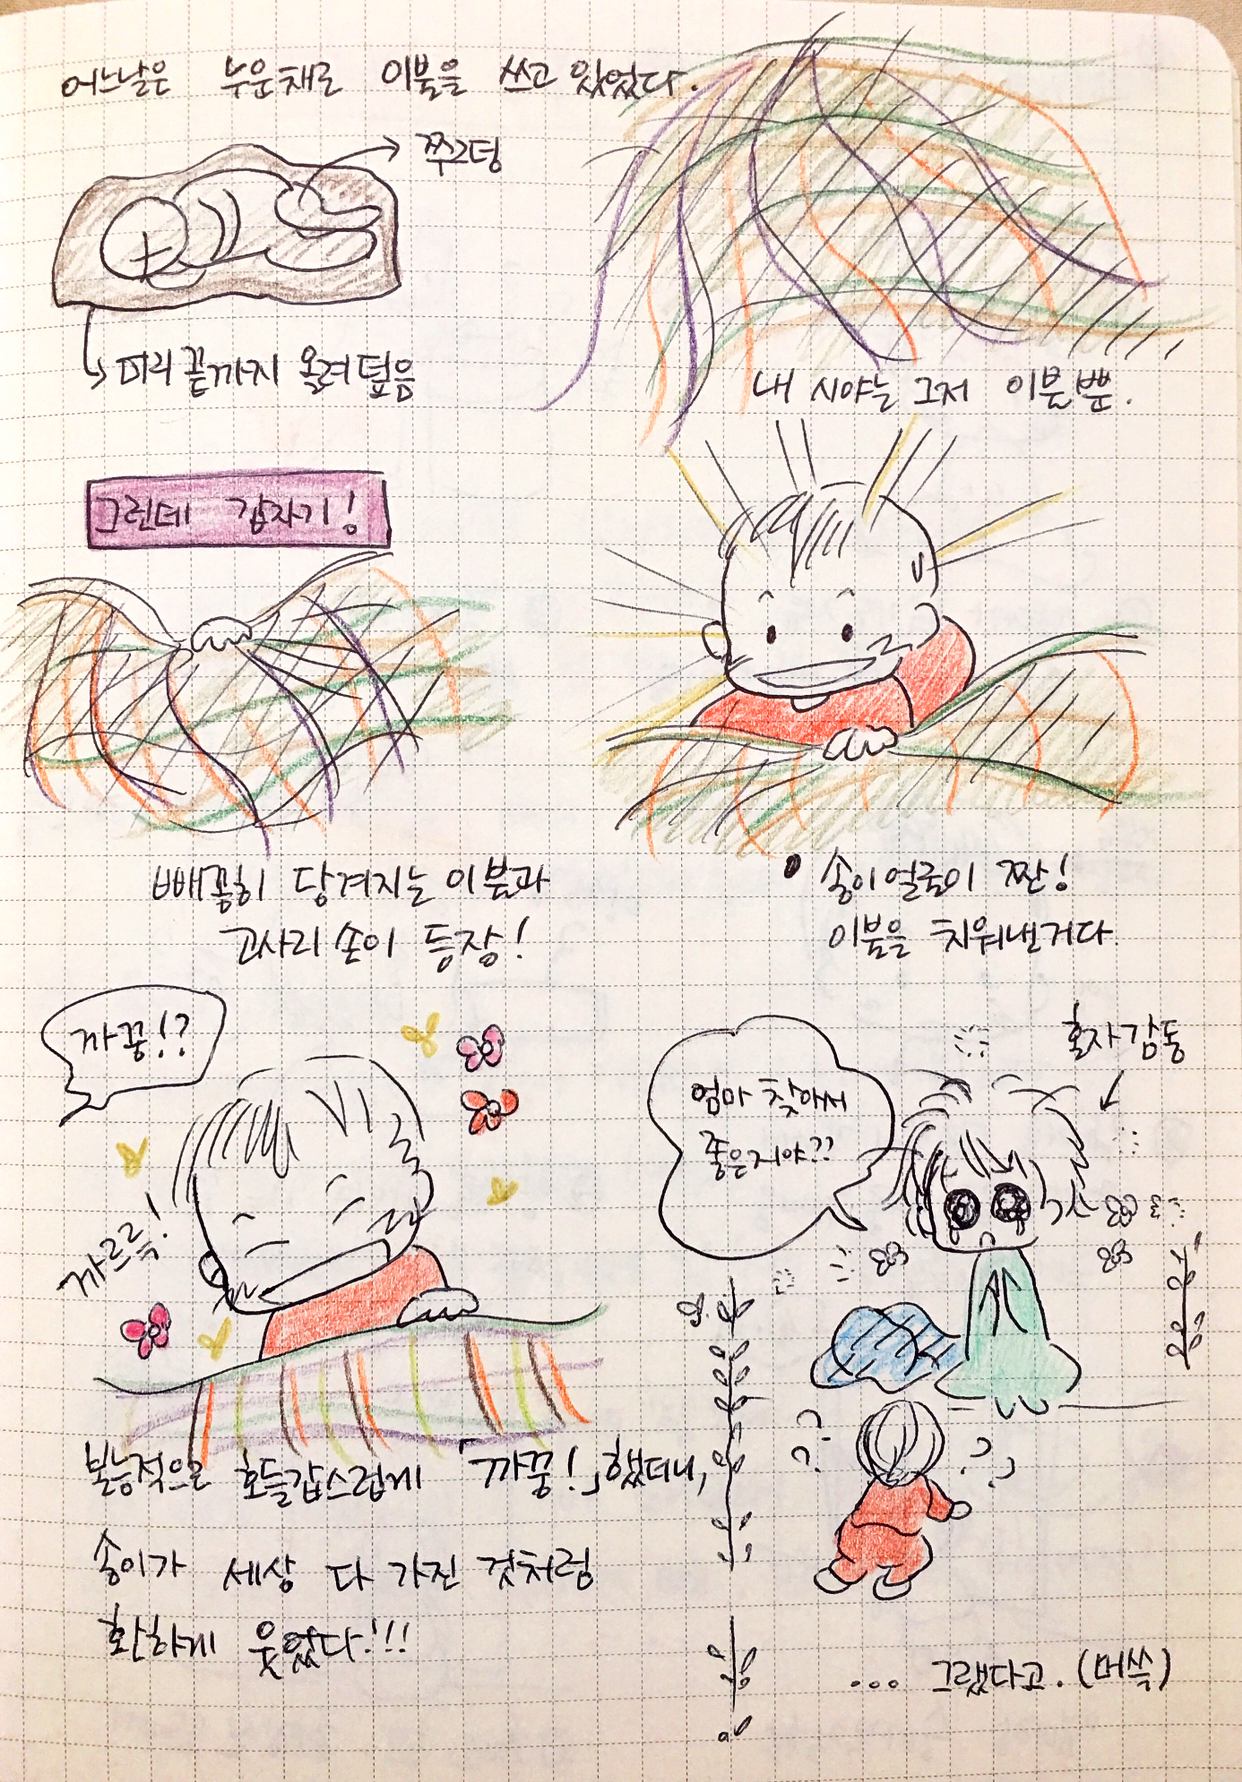 어느날은 누운채로 이불을 쓰고 있었다.
쭈그덩
머리 끝까지 올려덮음
내 시야는 그저 이불뿐.
그런데 갑자기!
빼꼼히 당겨지는 이불과
고사리 손이 등장!
송이얼굴이 짠!
이불을 치워낸거다
까꿍!?
까르륵!
혼자감동
엄마 찾아서
좋은거야??
본능적으로 호들갑스럽게 「까꿍!」했더니,
송이가 세상 다 가진 것처럼
환하게 웃었다!!!
... 그랬다고. (머쓱)